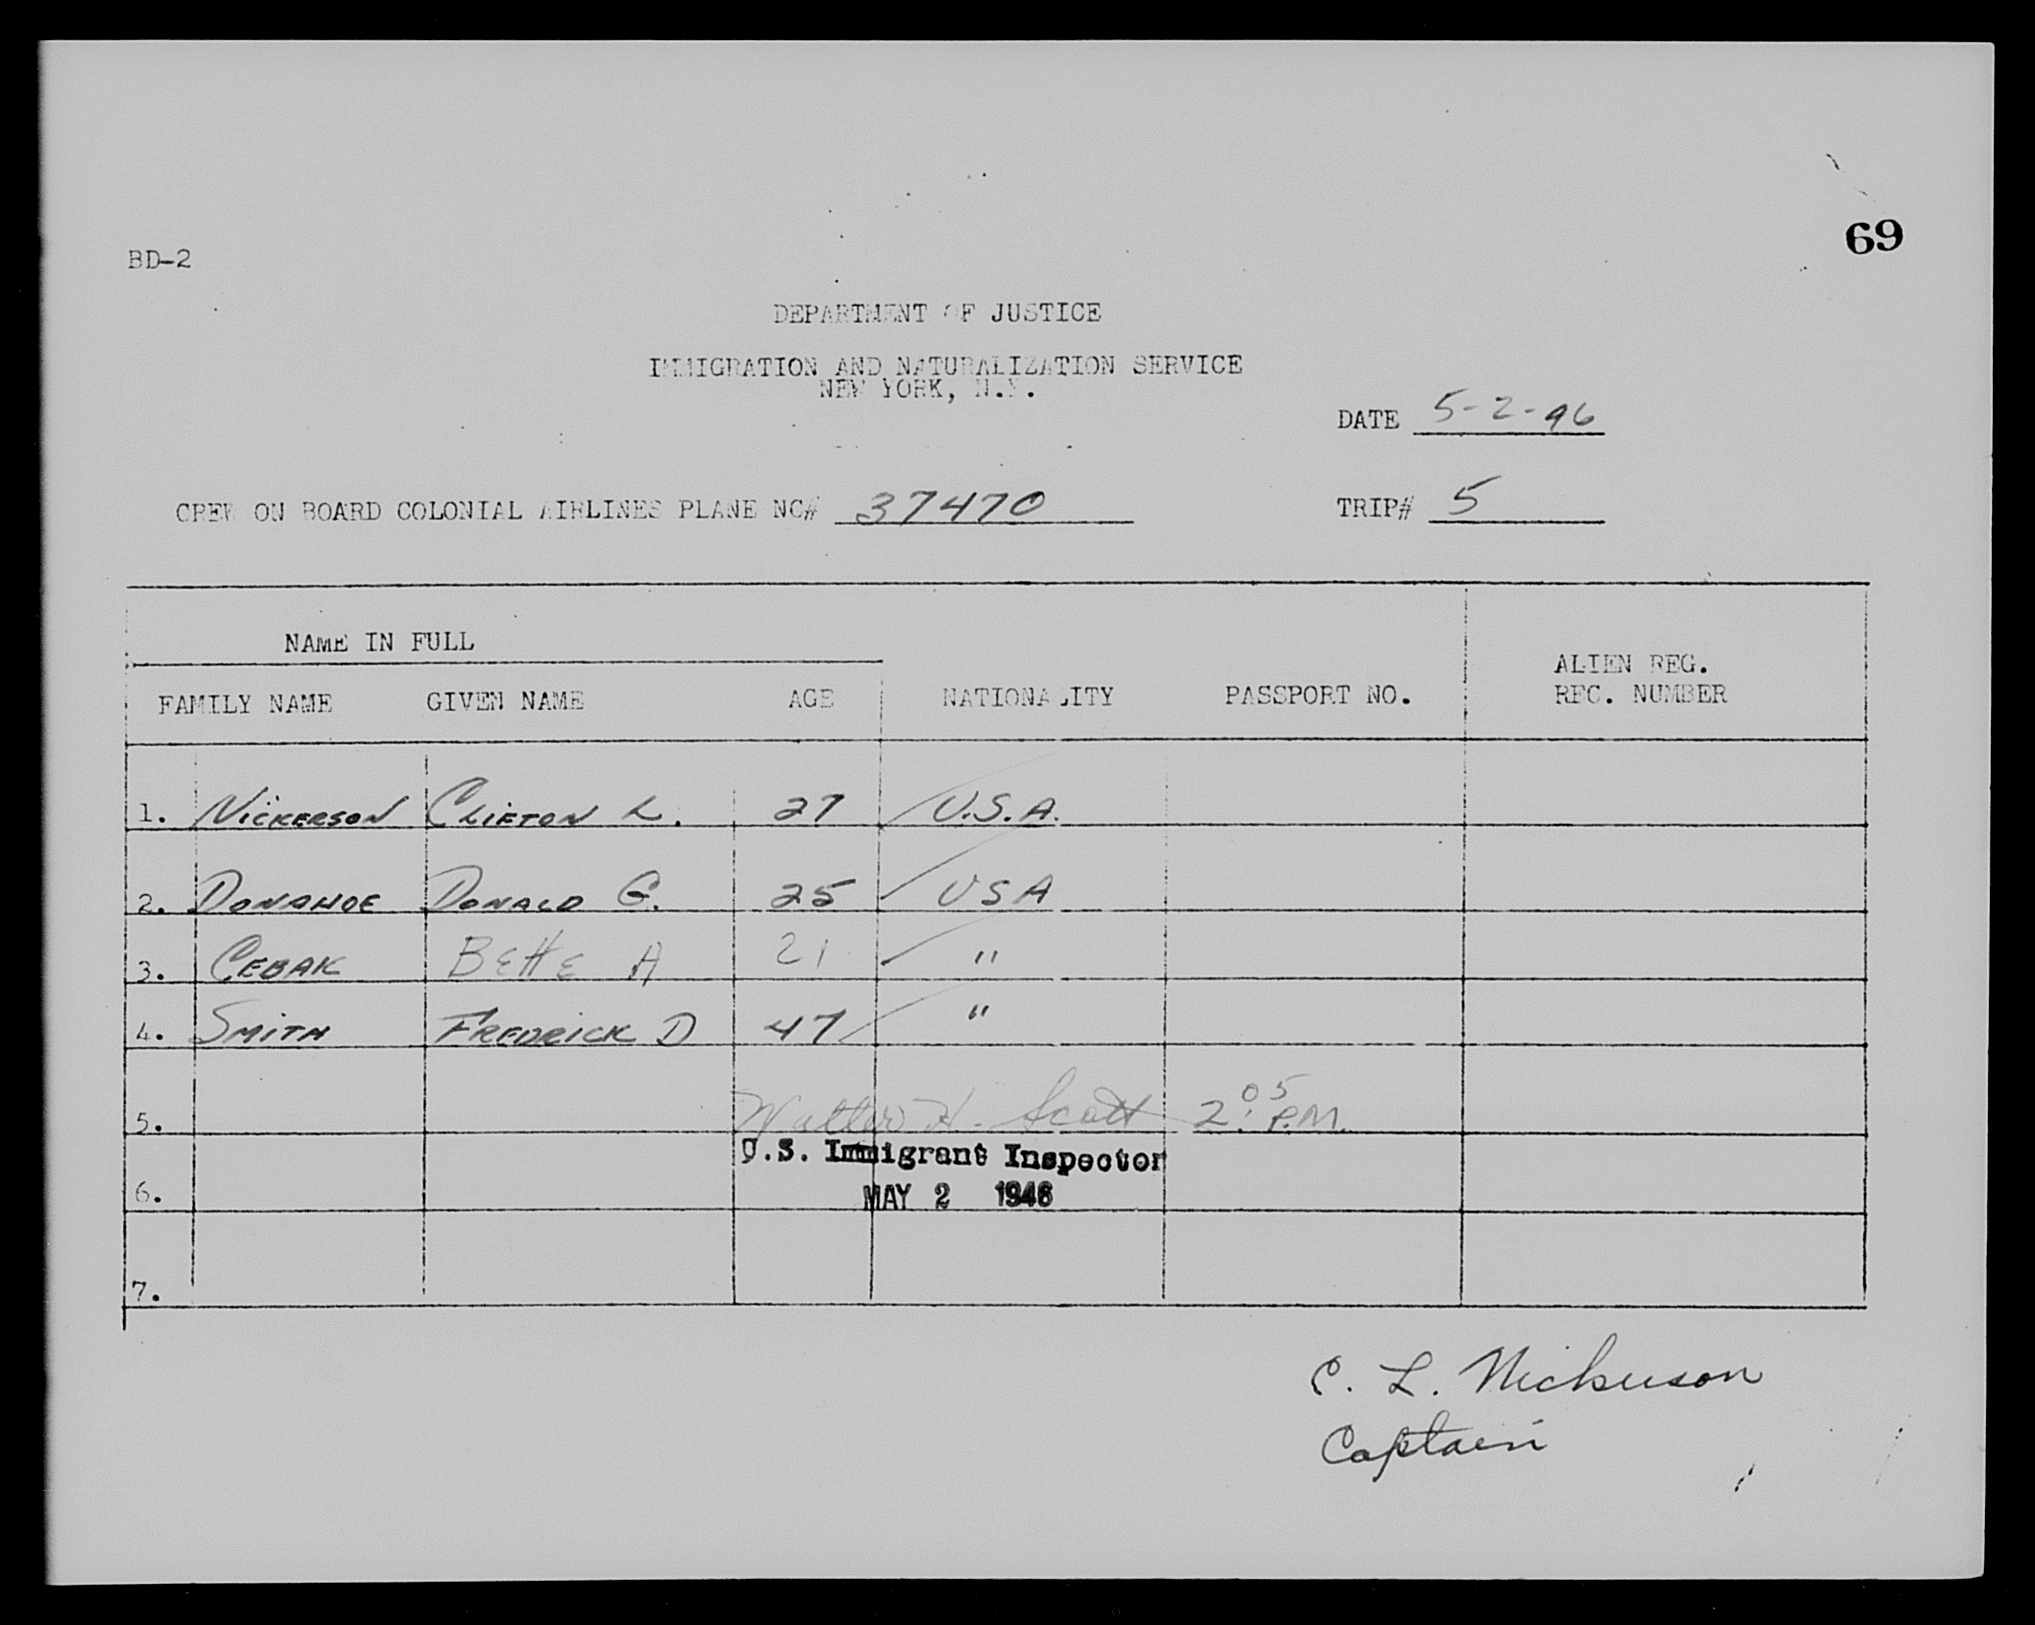 69
BD-2
DEPARTMENT OF JUSTICE
IMMIGRATION AND NATURALIZATION SERVICE
NEW YORK, N.Y.
DATE 5-2-46
CREW ON BOARD COLONIAL AIRLINES PLANE NC# 37470 TRIP# 5
NAME IN FULL
ALIEN REG.
FAMILY NAME GIVEN NAME AGE NATIONALITY PASSPORT NO. REC. NUMBER
1. NICKERSON CLIFTON L. 27 U.S.A.
2. DONAHOE DONALD G. 25 USA
3. CEBAK BETTE A 21 "
4. SMITH FREDRICK D 47 "
5. Walter H. Scott 2:05 P.M.
U.S. Immigrant Inspector
6. MAY 2 1946
7.
C. L. Nickerson
Captain